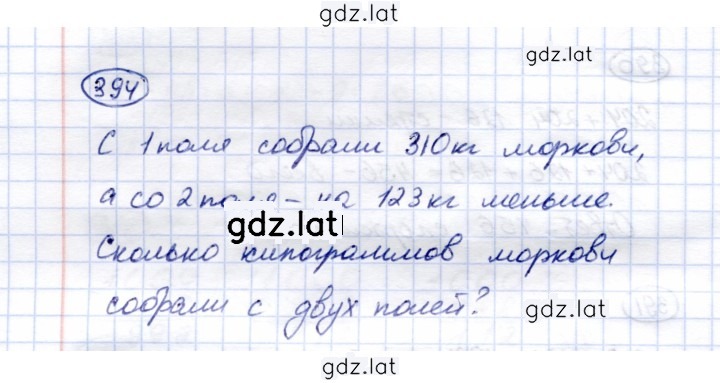 gdz.lat
gdz.lat
394
С 1 поля собрали 310 кг моркови,
а со 2 поля – на 123 кг меньше.
gdz.lat
Сколько килограммов моркови
собрали с двух полей?
gdz.lat
gdz.lat